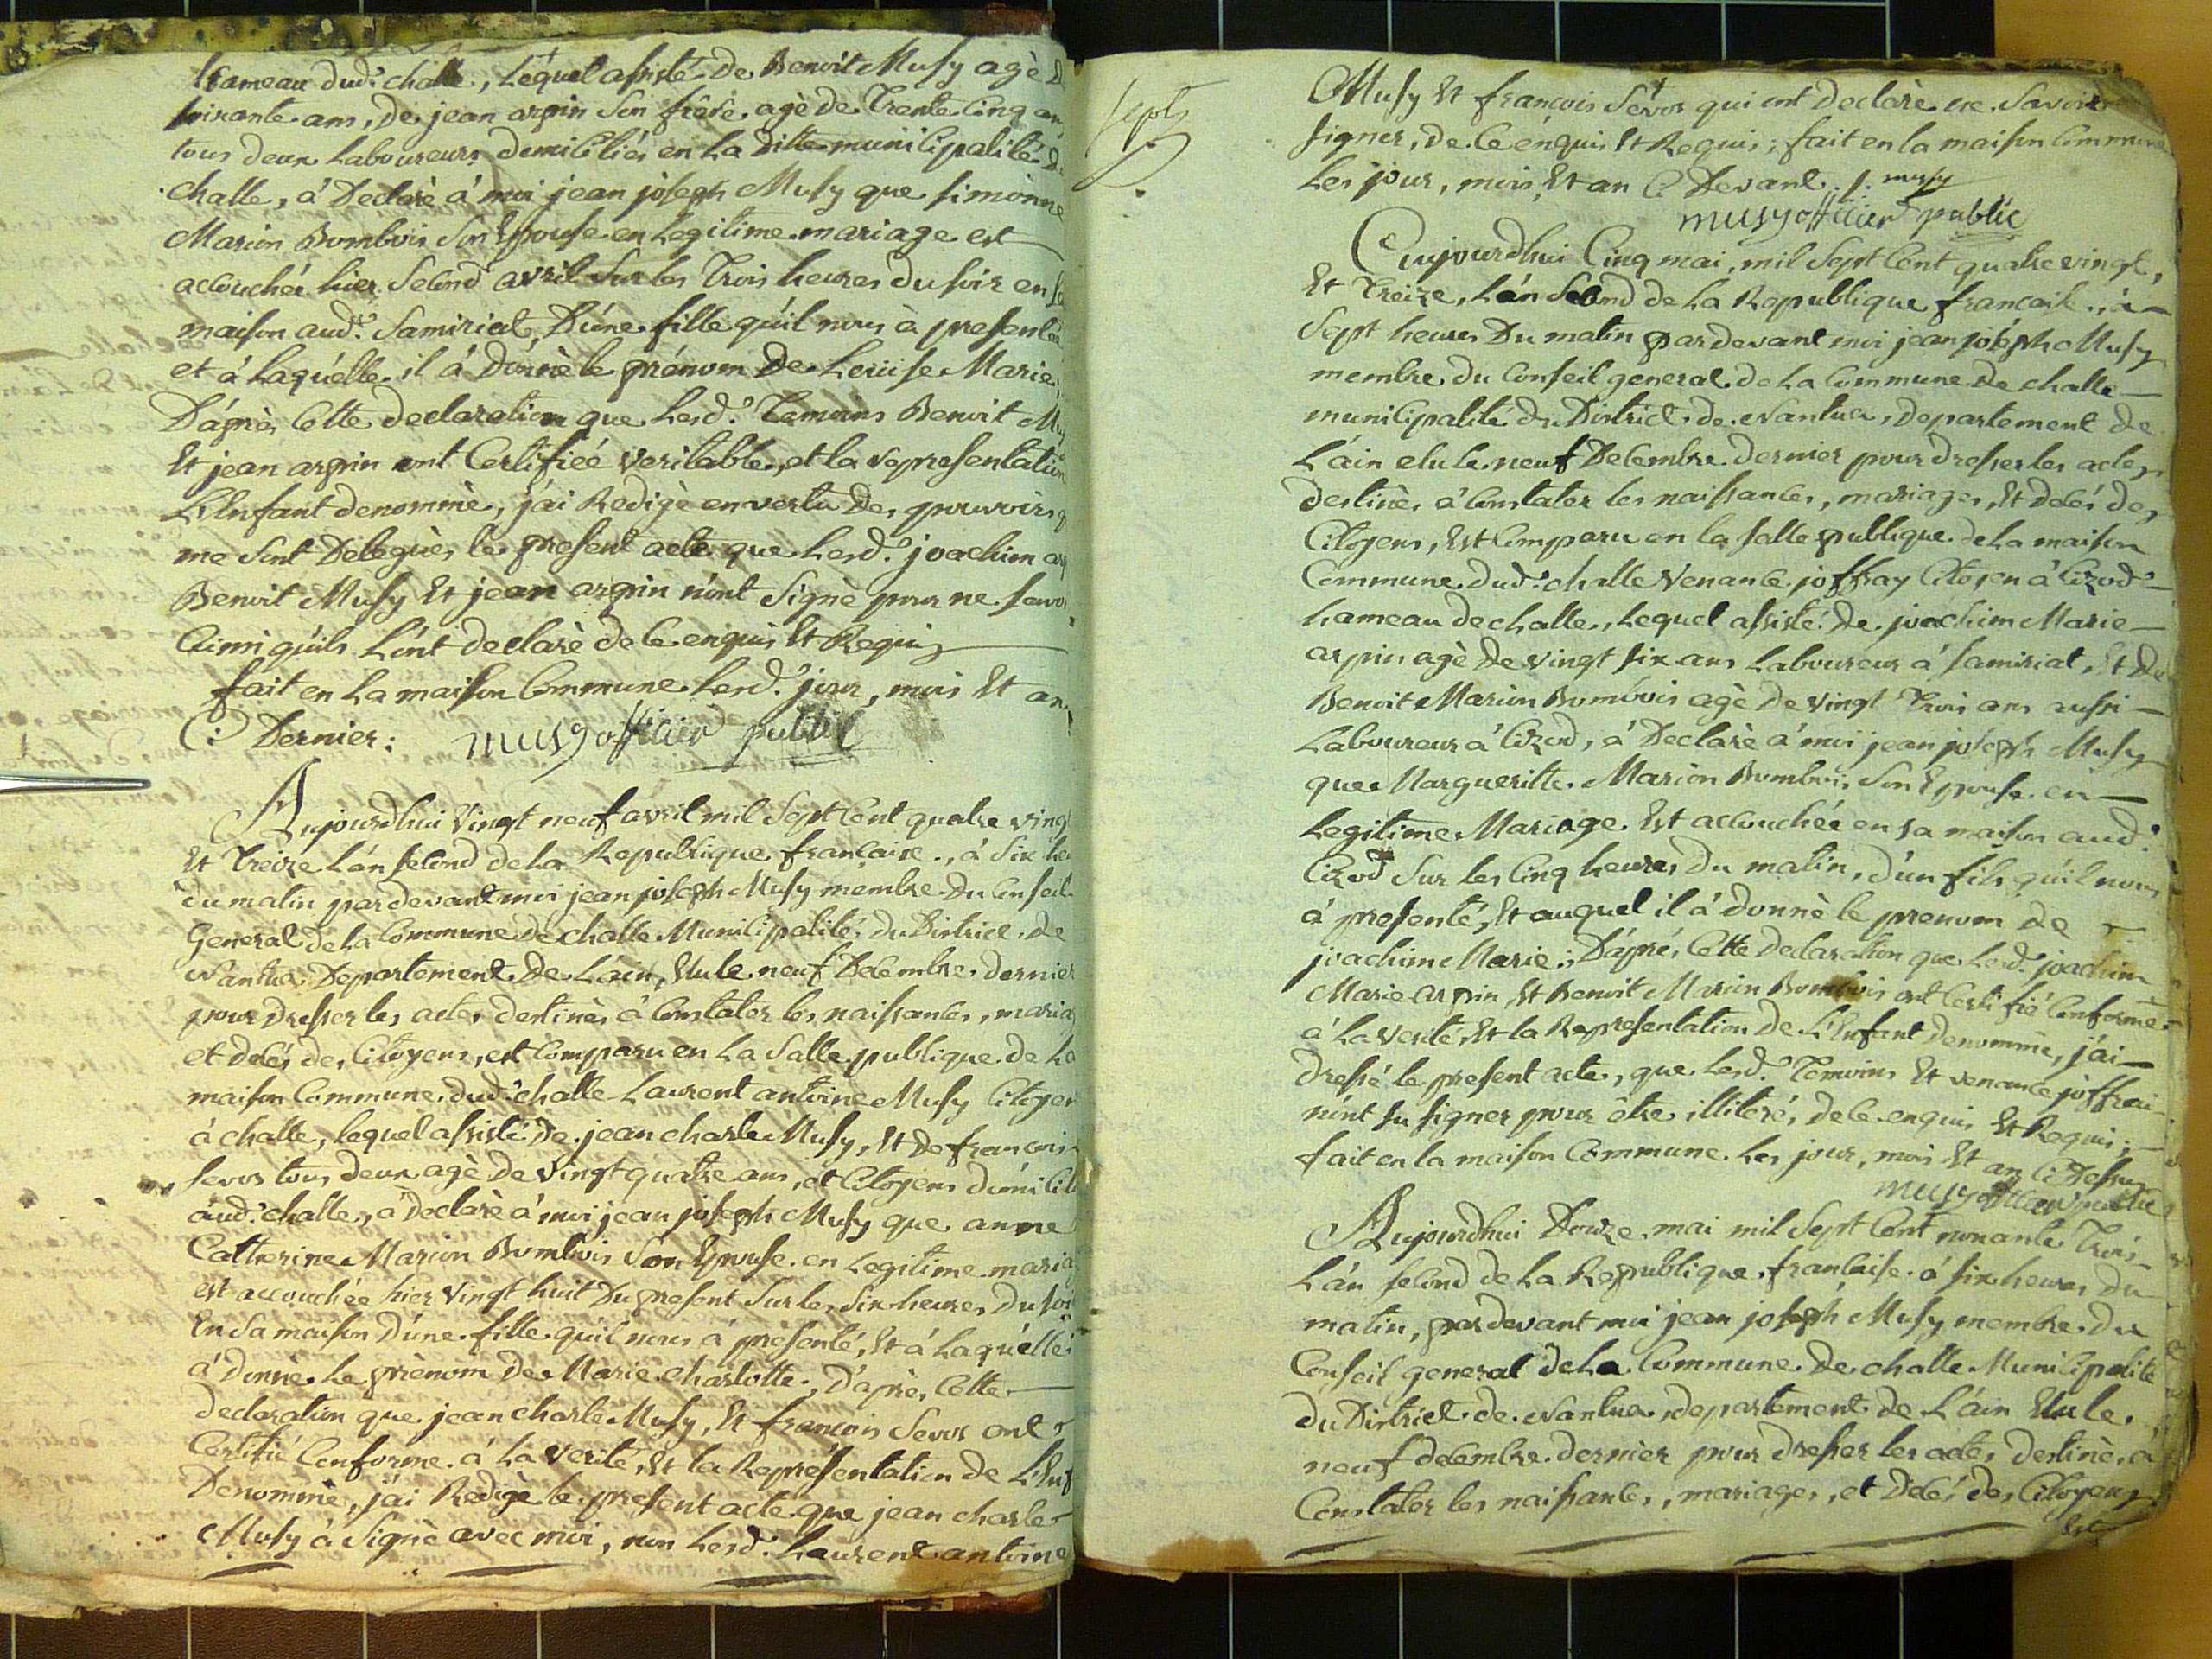 hameau dud.t challe, Lequel assisté de Benoit Musy agè D
soixante ans, De jean arpin son frére agè de Trente Cinq an
tous deux Laboureurs domiciliés en La ditte municipalité De
challe, á Declaré á moi jean joseph Musy que simonne
Marion Bombois Son Epouse en Legitime mariage est
accouchée hier Second avril Sur les Trois heures du soir en sa
maison aud.t Samiriat, D'une fille qu'il nous à presentée
et á Laquélle il á Donnè le prénom De Louise Marie,
D'áprés Cette declaration que Lesd.s Temoins Benoit Mu
Et jean arpin ont Certifiéé veritable, et la representation
L'Enfant denommè, j'ai Redigè en vertu Des pouvoirs q
me Sont Deleguès le present acte que Lesd.s joachim arp
Benoit Musy Et jean arpin n'ont Signè pour ne savoi
Ainsi qu'ils L'ont declarè de Ce enquis Et Requis
fait en La maison Commune Lesd.s jour, mois Et an
Ci Dernier : musy officier public
Aujourdhui Vingt neuf avril mil Sept Cent quatre ving
Et Treize L'án second de La Republique française, á Six heu
du matin pardevant moi jean joseph Musy mémbre Du Conseil
General de La Commune De challe Municipalité Du District de
Nantua Departement De Láin, Elu le neuf Decembre dernier
pour Dresser les actes destinès á Constater les naissances, maria
et decés des Citoyens, est Comparu en La Salle publique de La
maison Commune dud.t challe Laurent antoine Musy Citoyen
á challe, lequel assisté De jean charle Musy, Et De francois
Sevos tous deux agè De Vingt quatre ans, et Citoyens dómicili
áud.t challe, á Declaré á moi jean joseph Musy que anne
Catherine Marion Bombois Son Epouse en Legitime maria
est accouchée hier Vingt huit Du present Sur les Six heures Du soi
En Sa maison D'une fille qu'il nous á presenté, Et á Laquélle i
á Donnè Le prènom De Marie charlotte; D'après Cette
Declaration que jean charle Musy, Et francois Sevos ont
Certifié Conforme á La Verité, Et la Représentation de L'Enf
Denommè, j'ai Redigè le present acte que jean charle
Musy á Signè avec moi, non Lesd.s Laurent antoine
sept
Musy Et francois Sevos qui ont Declarè ne Savoir
signer, De Ce énquis Et Requis; fait en la maison Commune
Les jour, mois, Et an Ci Devant. J. musy
musy officier public
Aujourdhui Cinq mai, mil Sept Cent quatre vingt,
Et Treize, L'án Second de La Republique francaise, á
Sept heures Du matin pardevant moi jean joséph Musy
membre du Conseil general de La Commune De challe
municipalité du District de Nantua, Departement de
L'áin elu le neuf Decembre dernier pour dresser les actes
destinès á Constater les naissances, mariages, Et decés des
Citoyens, Est Comparu en la salle publique de La maison
Commune dud.t challe Venance joffray Citoyen á Cizod
hameau de challe, Lequel assisté De joachim Marie
arpin agè De vingt six ans Laboureur á samiriat, Et De
Benoit Marion Bombois agè de vingt Trois ans aussi
Laboureur á Cizod, á Declarè á moi jean joseph Musy
que Marguerite Marion Bombois Son Epouse en
Legitime Mariage Est accouchée en sa maison aud.t
Cizod Sur les Cinq heures Du matin, d'un fils qu'il nous
á presenté, Et auquel il á donnè le prenom de
joachim Marie; D'áprés Cette Declaration que Lesd.s joachim
Marie arpin Et Benoit Marion Bombois ont Certifié Conforme
á La Verité, Et la Representation De L'Enfant Denommè, j'ai
Dressé le present acte, que Lesd.s Temoins Et venance joffrai
n'ont su signer pour être illiterés de ce enquis Et Requis;
fait en la maison Commune Les jour, mois Et an Ci Dessus
musy officier public
Aujourdhui Douze mai mil Sept Cent nonante Trois
L'án Second de La Republique francaise á six heures Du
matin, pardevant moi jean joseph Musy membre du
Conseil general de La Commune De challe Municipalité
du District de Nantua departement de L'áin Elu le
neuf decembre dernier pour dresser les actes destinès á
Constater les naissances, mariages, et Decés des Citoyens
Est